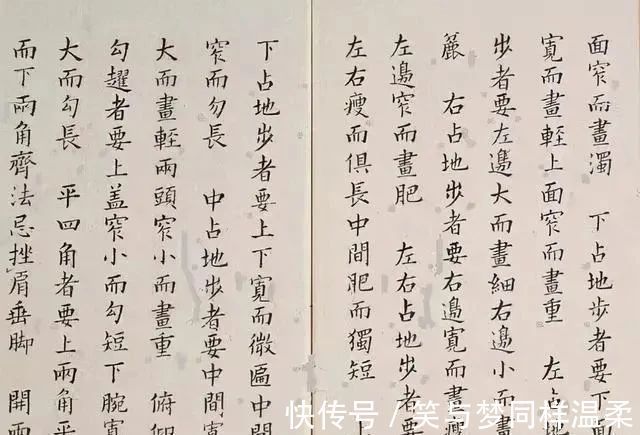 面窄而畫濁　下占地步者要下面
寬而畫輕上面窄而畫重　左占
步者要左邊大而畫細右邊小而畫
麄　右占地步者要右邊寬而畫瘦
左邊窄而畫肥　左右占地步者要
左右瘦而俱長中間肥而獨短
下占地步者要上下寬而微匾中間
窄而勿長　中占地步者要中間寬
大而畫輕兩頭窄小而畫重　俯仰
勾趯者要上盖窄小而勾短下腕寬
大而勾長　平四角者要上兩角平
而下兩角齊法忌挫肩垂脚　開兩
快传号／笑与梦同样温柔